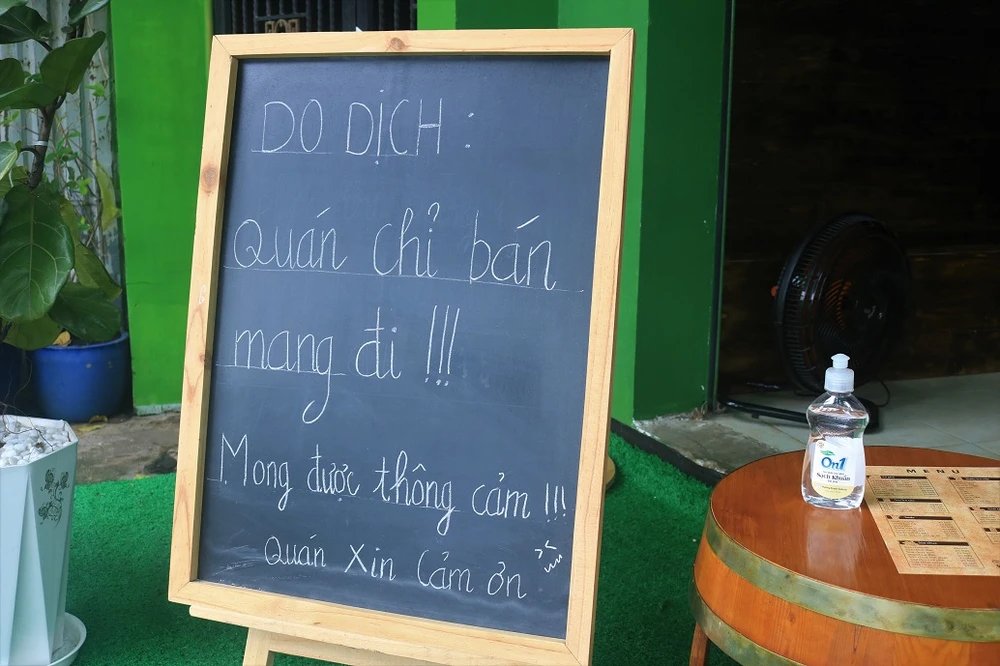 DO DỊCH :
Quán chỉ bán
mang đi !!!
Mong được thông cảm !!!
Quán Xin Cảm ơn
On1
Sạch Khuẩn
MENU